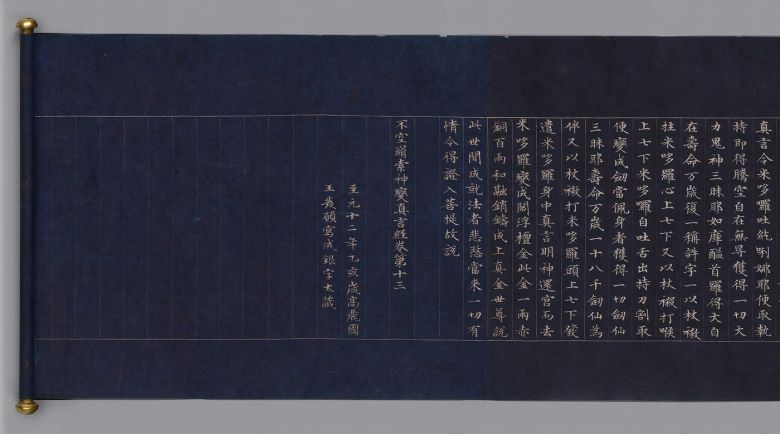 真言令米哆羅吐紇唎娜耶便取執
持即得騰空自在無㝵獲得一切大
力鬼神三昧耶如摩醯首羅得大自
在壽命万歳復一稱許字一以杖㯿
拄米哆羅心上七下又以杖㯿打喉
上七下米哆羅自吐舌出持刀割取
便變成劒當佩身者獲得一切劒仙
三昧耶壽命万歳一十八千劒仙為
伴又以杖㯿打米哆羅頭上七下發
遣米哆羅身中真言明神還宮而去
米哆羅變成閻浮檀金此金一兩赤
銅百兩和融銷鑄成上真金世尊說
此世間成就法者悲愍當來一切有
情令得證入菩提故說
不空羂索神變真言經卷第十三
至元十二年乙亥歳高麗國
王發願寫成銀字大藏